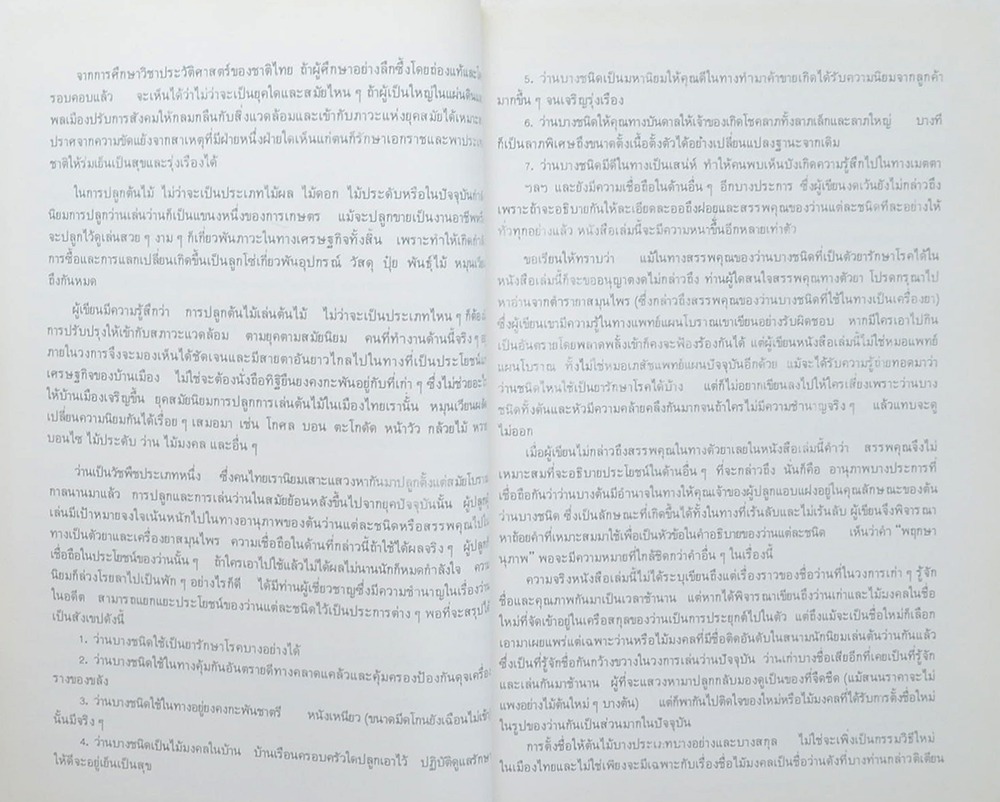 จากการศึกษาวิชาประวัติศาสตร์ของชาติไทย ถ้าผู้ศึกษาอย่างลึกซึ้งโดยถ่องแท้และ
รอบคอบแล้ว จะเห็นได้ว่าไม่ว่าจะเป็นยุคใดและสมัยไหน ๆ ถ้าผู้เป็นใหญ่ในแผ่นดิน
พลเมืองปรับการสังคมให้กลมกลืนกับสิ่งแวดล้อมและเข้ากับภาวะแห่งยุคสมัยได้
ปราศจากความขัดแย้งจากสาเหตุที่มีฝ่ายหนึ่งฝ่ายใดเห็นแก่ตนก็รักษาเอกราชและพา
ชาติให้ร่มเย็นเป็นสุขและรุ่งเรืองได้
ในการปลูกต้นไม้ ไม่ว่าจะเป็นประเภทไม้ผล ไม้ดอก ไม้ประดับหรือในปัจจุบัน
นิยมการปลูกว่านเล่นว่านก็เป็นแขนงหนึ่งของการเกษตร แม้จะปลูกขายเป็นงานอาชีพ
จะปลูกไว้ดูเล่นสวย ๆ งาม ๆ ก็เกี่ยวพันภาวะในทางเศรษฐกิจทั้งสิ้น เพราะทำให้เกิด
การซื้อและการแลกเปลี่ยนเกิดขึ้นเป็นลูกโซ่เกี่ยวพันอุปกรณ์ วัสดุ ปุ๋ย พันธุ์ไม้
ถึงกันหมด
ผู้เขียนมีความรู้สึกว่า การปลูกต้นไม้เล่นต้นไม้ ไม่ว่าจะเป็นประเภทไหน ๆ
การปรับปรุงให้เข้ากับสภาวะแวดล้อม ตามยุคตามสมัยนิยม คนที่ทำงานด้านนี้จริง ๆ
ภายในวงการจึงจะมองเห็นได้ชัดเจนและมีสายตาอันยาวไกลไปในทางที่เป็นประโยชน์
เศรษฐกิจของบ้านเมือง ไม่ใช่จะต้องนั่งถือทิฐิยืนยงคงกะพันอยู่กับที่เก่า ๆ ซึ่งไม่ช่วย
ให้บ้านเมืองเจริญขึ้น ยุคสมัยนิยมการปลูกการเล่นต้นไม้ในเมืองไทยเรานั้น หมุนเวียน
เปลี่ยนความนิยมกันได้เรื่อย ๆ เสมอมา เช่น โกศล บอน ตะโกดัด หน้าวัว กล้วยไม้
บอนไซ ไม้ประดับ ว่าน ไม้มงคล และอื่น ๆ
ว่านเป็นวัชพืชประเภทหนึ่ง ซึ่งคนไทยเรานิยมเสาะแสวงหากันมาปลูกตั้งแต่สมัย
กาลนานมาแล้ว การปลูกและการเล่นว่านในสมัยย้อนหลังขึ้นไปจากยุคปัจจุบันนั้น
เล่นมีเป้าหมายจงใจเน้นหนักไปในทางอานุภาพของต้นว่านแต่ละชนิดหรือสรรพคุณ
ทางเป็นตัวยาและเครื่องยาสมุนไพร ความเชื่อถือในด้านที่กล่าวนี้ถ้าใช้ได้ผลจริง ๆ
เชื่อถือในประโยชน์ของว่านนั้น ๆ ถ้าใครเอาไปใช้แล้วไม่ได้ผลไม่นานนักก็หมดกำลังใจ
นิยมก็ล่วงโรยลาไปเป็นพัก ๆ อย่างไรก็ดี ได้มีท่านผู้เชี่ยวชาญซึ่งมีความชำนาญในเรื่อง
ในอดีต สามารถแยกแยะประโยชน์ของว่านแต่ละชนิดไว้เป็นประการต่าง ๆ พอที่จะสรุปได้
เป็นสังเขปดังนี้
1. ว่านบางชนิดใช้เป็นยารักษาโรคบางอย่างได้
2. ว่านบางชนิดใช้ในทางคุ้มกันอันตรายดีทางคลาดแคล้วและคุ้มครองป้องกันดุจเครื่อง
รางของขลัง
3. ว่านบางชนิดใช้ในทางอยู่ยงคงกะพันชาตรี หนังเหนียว (ขนาดมีดโกนยังเฉือนไม่เข้า
นั้นมีจริง ๆ
4. ว่านบางชนิดเป็นไม้มงคลในบ้าน บ้านเรือนครอบครัวใดปลูกเอาไว้ ปฏิบัติดูแลรักษา
ให้ดีจะอยู่เย็นเป็นสุข
5. ว่านบางชนิดเป็นมหานิยมให้คุณดีในทางทำมาค้าขายเกิดได้รับความนิยมจากลูกค้า
มากขึ้น ๆ จนเจริญรุ่งเรือง
6. ว่านบางชนิดให้คุณทางบันดาลให้เจ้าของเกิดโชคลาภทั้งลาภเล็กและลาภใหญ่ บางที
ก็เป็นลาภพิเศษถึงขนาดตั้งเนื้อตั้งตัวได้อย่างเปลี่ยนแปลงฐานะจากเดิม
7. ว่านบางชนิดมีดีในทางเป็นเสน่ห์ ทำให้คนพบเห็นบังเกิดความรู้สึกไปในทางเมตตา
ฯลฯ และยังมีความเชื่อถือในด้านอื่น ๆ อีกบางประการ ซึ่งผู้เขียนงดเว้นยังไม่กล่าวถึง
เพราะถ้าจะอธิบายกันให้ละเอียดละออถึงฝอยและสรรพคุณของว่านแต่ละชนิดทีละอย่างให้
ทั่วทุกอย่างแล้ว หนังสือเล่มนี้จะมีความหนาขึ้นอีกหลายเท่าตัว
ขอเรียนให้ทราบว่า แม้ในทางสรรพคุณของว่านบางชนิดที่เป็นตัวยารักษาโรคได้ใน
หนังสือเล่มนี้ก็จะขออนุญาตงดไม่กล่าวถึง ท่านผู้ใดสนใจสรรพคุณทางตัวยา โปรดกรุณาไป
หาอ่านจากตำรายาสมุนไพร (ซึ่งกล่าวถึงสรรพคุณของว่านบางชนิดที่ใช้ในทางเป็นเครื่องยา)
ซึ่งผู้เขียนเขามีความรู้ในทางแพทย์แผนโบราณเขาเขียนอย่างรับผิดชอบ หากมีใครเอาไปกิน
เป็นอันตรายโดยพลาดพลั้งเข้าก็คงจะฟ้องร้องกันได้ แต่ผู้เขียนหนังสือเล่มนี้ไม่ใช่หมอแพทย์
แผนโบราณ ทั้งไม่ใช่หมอเภสัชแพทย์แผนปัจจุบันอีกด้วย แม้จะได้รับความรู้ถ่ายทอดมาว่า
ว่านชนิดไหนใช้เป็นยารักษาโรคได้บ้าง แต่ก็ไม่อยากเขียนลงไปให้ใครเสี่ยงเพราะว่านบาง
ชนิดทั้งต้นและหัวมีความคล้ายคลึงกันมากจนถ้าใครไม่มีความชำนาญจริง ๆ แล้วแทบจะดู
ไม่ออก
เมื่อผู้เขียนไม่กล่าวถึงสรรพคุณในทางตัวยาเลยในหนังสือเล่มนี้คำว่า สรรพคุณจึงไม่
เหมาะสมที่จะอธิบายประโยชน์ในด้านอื่น ๆ ที่จะกล่าวถึง นั่นก็คือ อานุภาพบางประการที่
เชื่อถือกันว่าว่านบางต้นมีอำนาจในทางให้คุณเจ้าของผู้ปลูกแอบแฝงอยู่ในคุณลักษณะของต้น
ว่านบางชนิด ซึ่งเป็นลักษณะที่เกิดขึ้นได้ทั้งในทางที่เร้นลับและไม่เร้นลับ ผู้เขียนจึงพิจารณา
หาถ้อยคำที่เหมาะสมมาใช้เพื่อเป็นหัวข้อในคำอธิบายของว่านแต่ละชนิด เห็นว่าคำ “พฤกษา
นุภาพ” พอจะมีความหมายที่ใกล้ชิดกว่าคำอื่น ๆ ในเรื่องนี้
ความจริงหนังสือเล่มนี้ไม่ได้ระบุเขียนถึงแต่เรื่องราวของชื่อว่านที่ในวงการเก่า ๆ รู้จัก
ชื่อและคุณภาพกันมาเป็นเวลาช้านาน แต่หากได้พิจารณาเขียนถึงว่านเก่าและไม้มงคลในชื่อ
ใหม่ที่จัดเข้าอยู่ในเครือสกุลของว่านเป็นการประยุกต์ไปในตัว แต่ถึงแม้จะเป็นชื่อใหม่ก็เลือก
เอามาเผยแพร่แต่เฉพาะว่านหรือไม้มงคลที่มีชื่อติดอันดับในสนามนักนิยมเล่นต้นว่านกันแล้ว
ซึ่งเป็นที่รู้จักชื่อกันกว้างขวางในวงการเล่นว่านปัจจุบัน ว่านเก่าบางชื่อเสียอีกที่เคยเป็นที่รู้จัก
และเล่นกันมาช้านาน ผู้ที่จะแสวงหามาปลูกกลับมองดูเป็นของที่จืดชืด (แม้สนนราคาจะไม่
แพงอย่างไม้ต้นใหม่ ๆ บางต้น) แต่ก็พากันไปติดใจของใหม่หรือไม้มงคลที่ได้รับการตั้งชื่อใหม่
ในรูปของว่านกันเป็นส่วนมากในปัจจุบัน
การตั้งชื่อให้ต้นไม้บางประเภทบางอย่างและบางสกุล ไม่ใช่จะเพิ่งเป็นกรรมวิธีใหม่
ในเมืองไทยและไม่ใช่เพียงจะมีเฉพาะกับเรื่องชื่อไม้มงคลเป็นชื่อว่านดังที่บางท่านกล่าวติเตียน